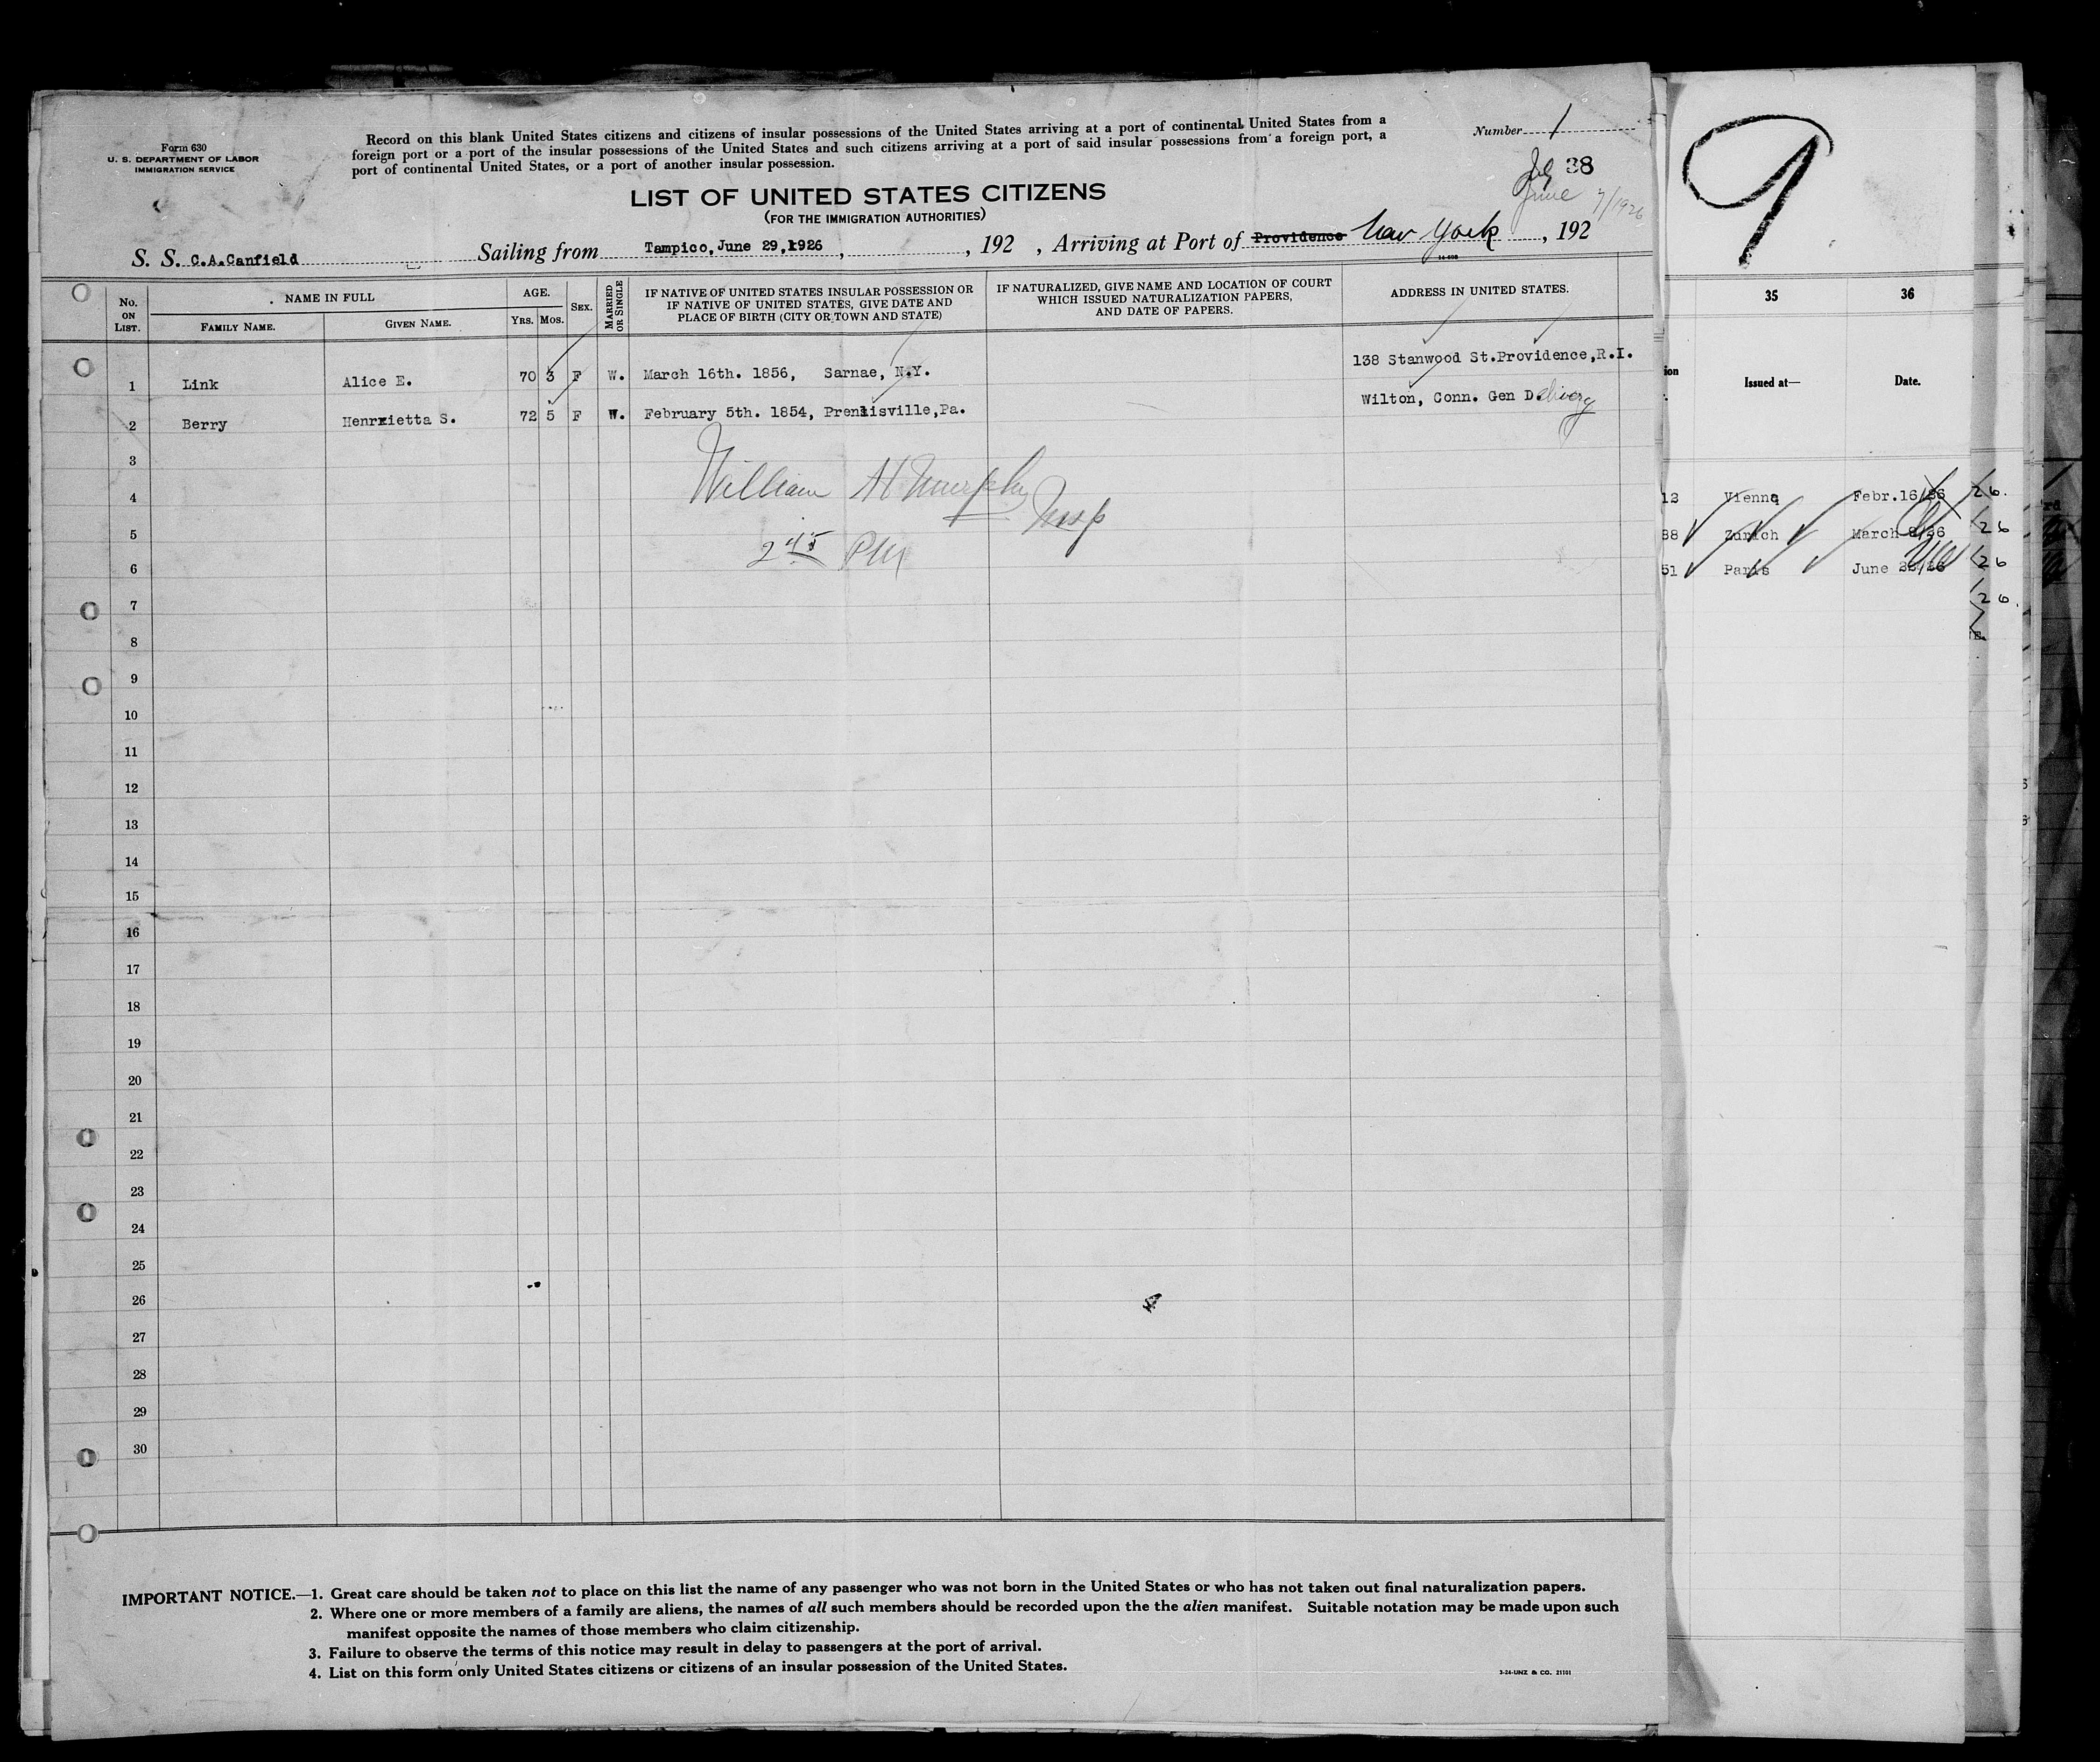 Form 630
U. S. DEPARTMENT OF LABOR
IMMIGRATION SERVICE
Record on this blank United States citizens and citizens of insular possessions of the United States arriving at a port of continental United States from a
foreign port or a port of the insular possessions of the United States and such citizens arriving at a port of said insular possessions from a foreign port, a
port of continental United States, or a port of another insular possession.
Number 1
38
June 7/1926
LIST OF UNITED STATES CITIZENS
(FOR THE IMMIGRATION AUTHORITIES)
S. S. C.A.Canfield Sailing from Tampico, June 29, 1926, , 192 , Arriving at Port of Providence New York, 192
No. ON LIST.
NAME IN FULL
FAMILY NAME. GIVEN NAME.
AGE.
YRS. MOS.
SEX.
MARRIED OR SINGLE
IF NATIVE OF UNITED STATES INSULAR POSSESSION OR
IF NATIVE OF UNITED STATES, GIVE DATE AND
PLACE OF BIRTH (CITY OR TOWN AND STATE)
IF NATURALIZED, GIVE NAME AND LOCATION OF COURT
WHICH ISSUED NATURALIZATION PAPERS,
AND DATE OF PAPERS.
ADDRESS IN UNITED STATES.
1 Link Alice E. 70 3 F W. March 16th. 1856, Sarnae, N.Y. 138 Stanwood St.Providence,R.I.
2 Berry Henrxietta S. 72 5 F W. February 5th. 1854, Prenlisville,Pa. Wilton, Conn. Gen Delivery
3
4 William H Murphy Insp
5
6 2 45 PM
7
8
9
10
11
12
13
14
15
16
17
18
19
20
21
22
23
24
25
26
27
28
29
30
IMPORTANT NOTICE.—1. Great care should be taken not to place on this list the name of any passenger who was not born in the United States or who has not taken out final naturalization papers.
2. Where one or more members of a family are aliens, the names of all such members should be recorded upon the the alien manifest. Suitable notation may be made upon such
manifest opposite the names of those members who claim citizenship.
3. Failure to observe the terms of this notice may result in delay to passengers at the port of arrival.
4. List on this form only United States citizens or citizens of an insular possession of the United States.
3-24-UNZ & CO. 21101
9
35 36
ion
Issued at— Date.
12 Vienna Febr.16/26 26.
88 Zurich March 26
51 Paris June 26
26.